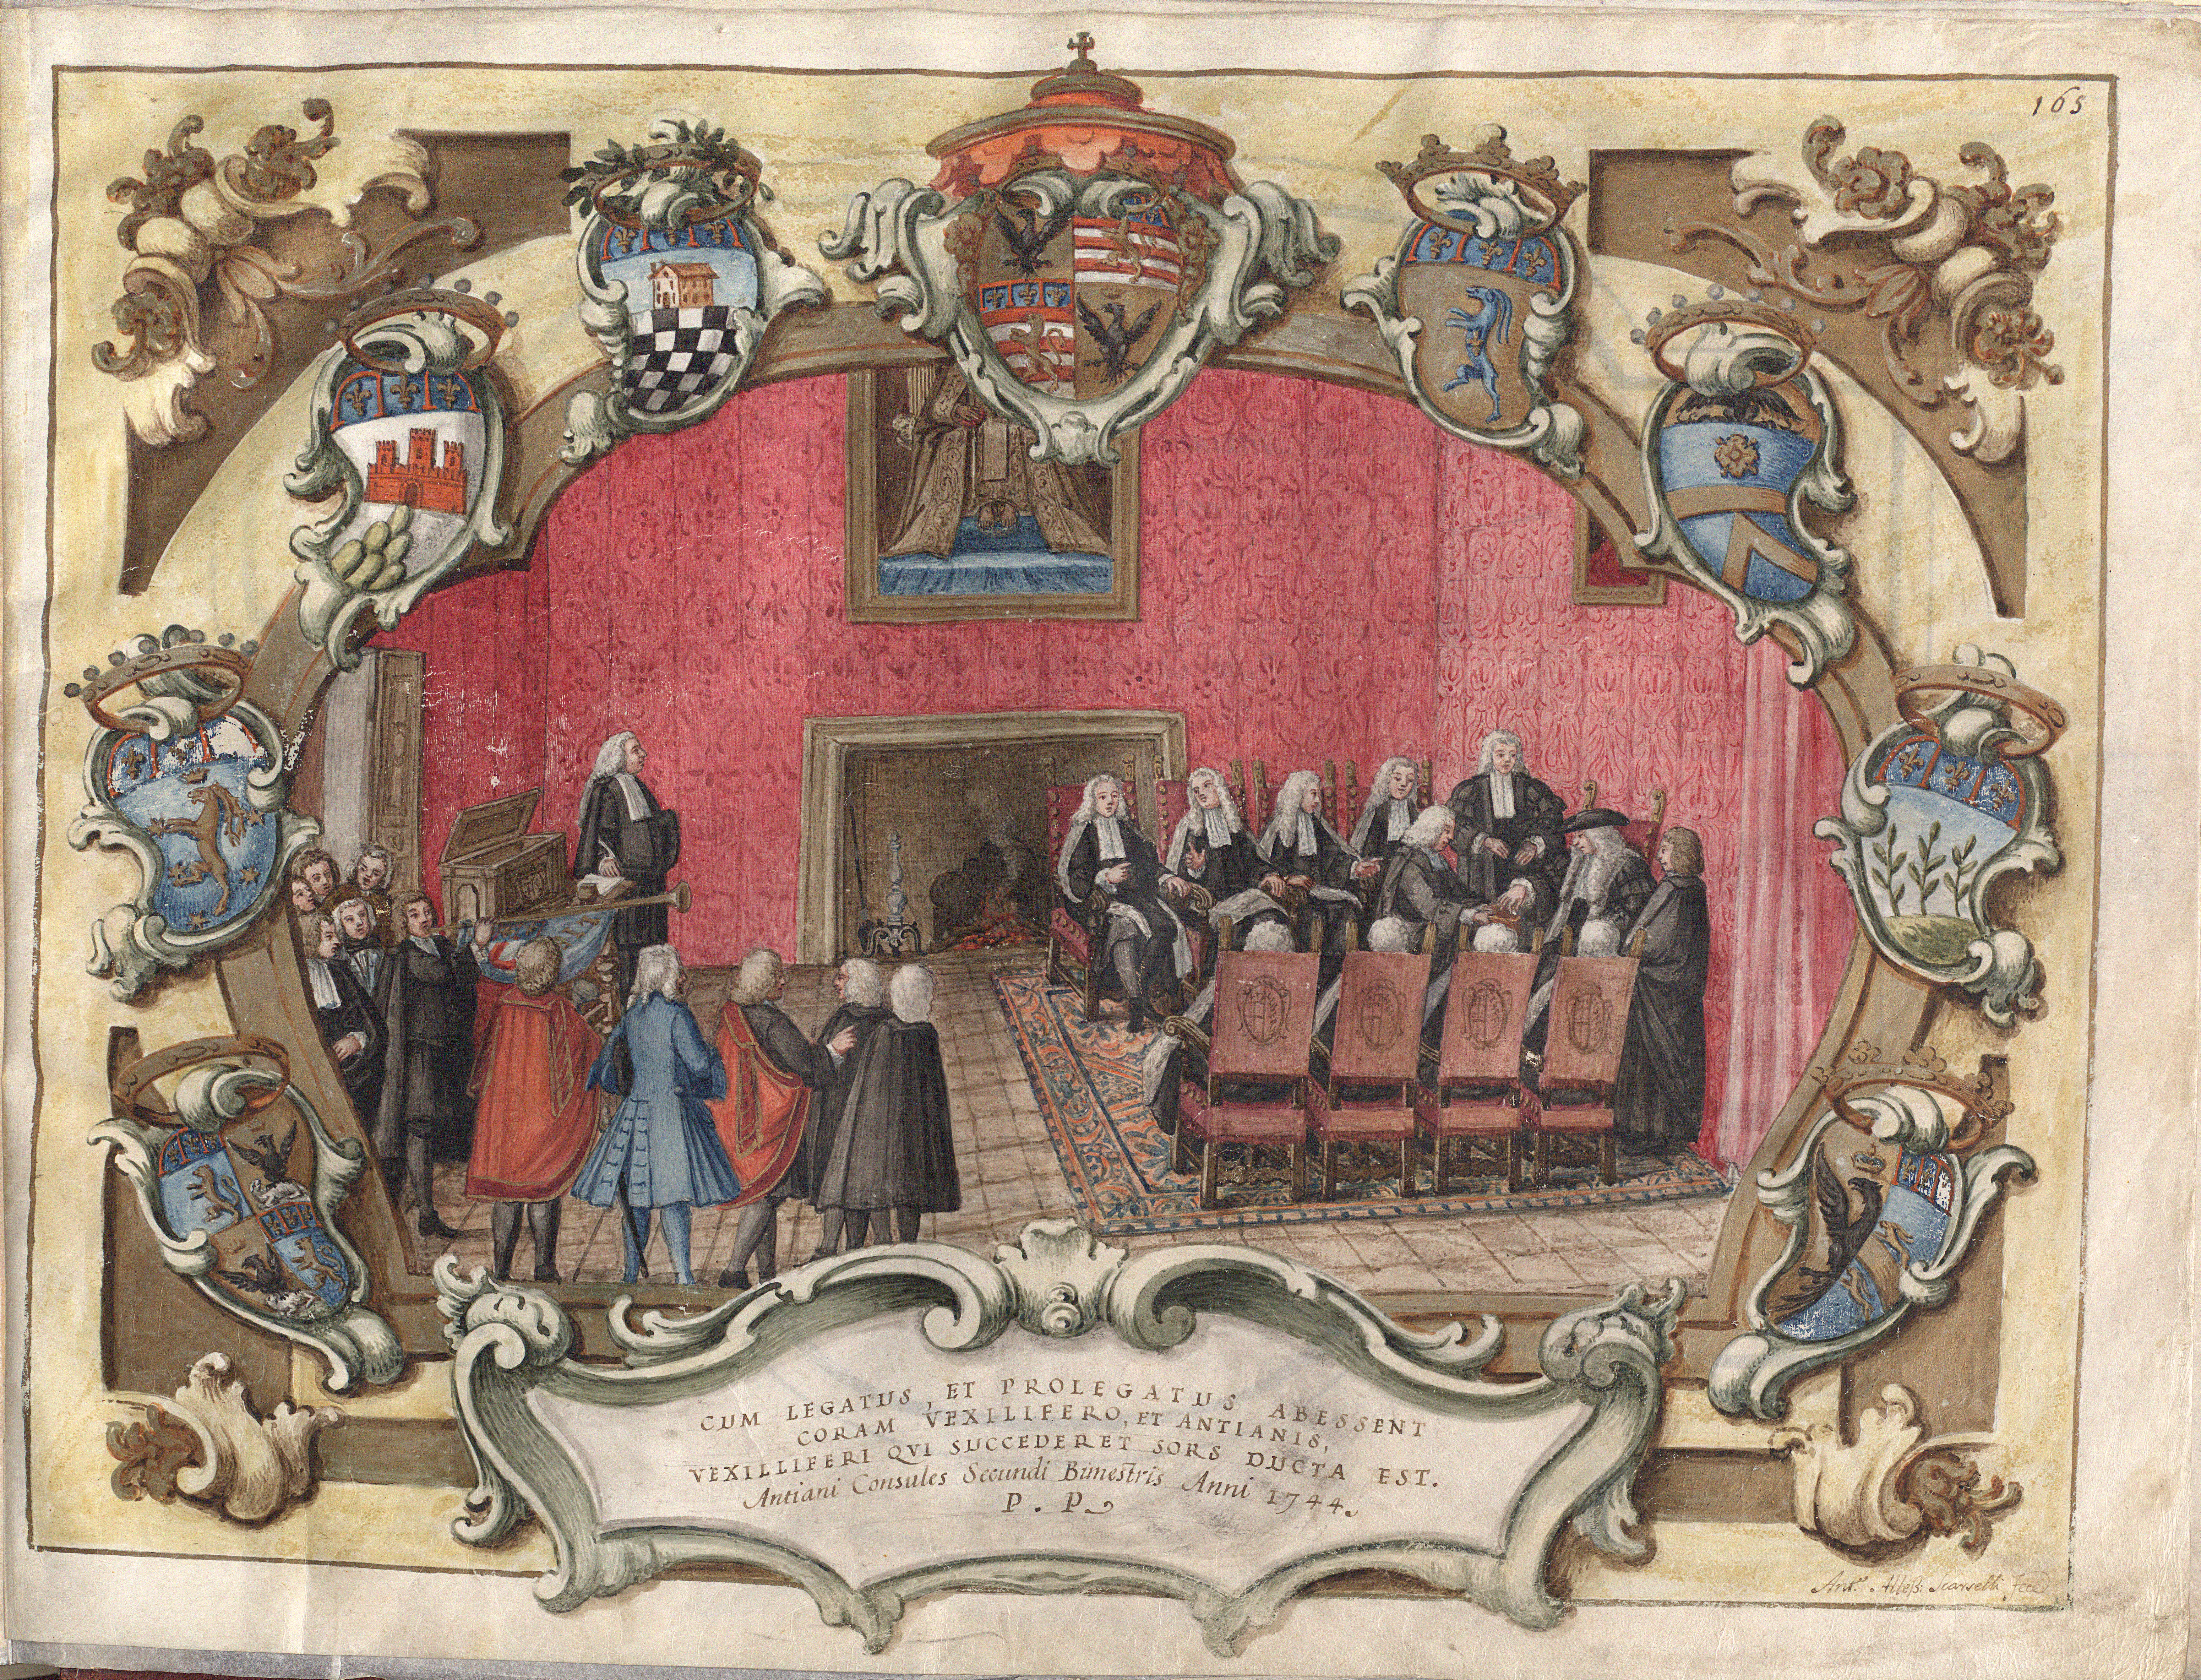 165
CUM LEGATUS, ET PROLEGATUS ABESSENT
CORAM VEXILIFERO, ET ANTIANIS,
VEXILLIFERI QVI SUCCEDERET SORS DUCTA EST.
Antiani Consules Secundi Bimestris Anni 1744.
P. P.
Ant.º Aless: Scarselli fece